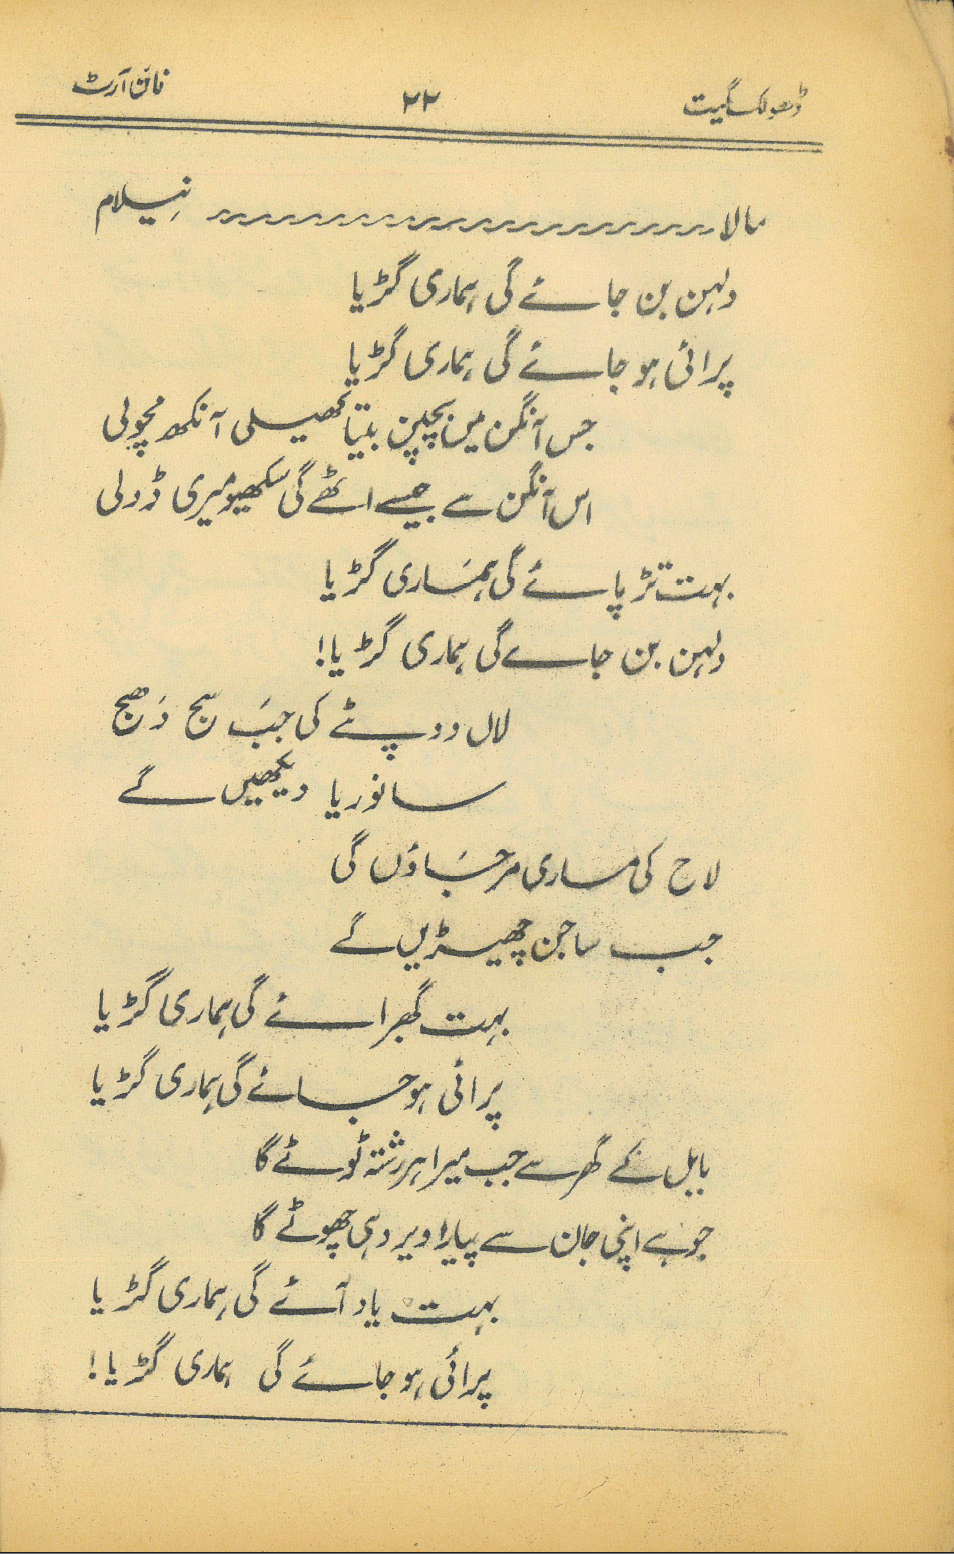 ڈھولک گیت ۲۲ فائن آرٹ
مالا نیلام
دلہن بن جائے گی ہماری گڑیا
پرائی ہو جائے گی ہماری گڑیا
جس آنگن میں بچپن بیتا کھیلی آنکھ مچولی
اس آنگن سے جیسے اٹھے گی سکھیو میری ڈولی
بہت تڑپائے گی ہماری گڑیا
دلہن بن جائے گی ہماری گڑیا!
لال دوپٹے کی جب سج دھج
سانوریا دیکھیں گے
لاج کی ماری مر جاؤں گی
جب ساجن چھیڑیں گے
بہت گھبرائے گی ہماری گڑیا
پرائی ہو جائے گی ہماری گڑیا
بابل کے گھر سے جب میرا ہر رشتہ ٹوٹے گا
جو ہے اپنی جان سے پیارا ویر وہی چھوٹے گا
بہت یاد آئے گی ہماری گڑیا
پرائی ہو جائے گی ہماری گڑیا!